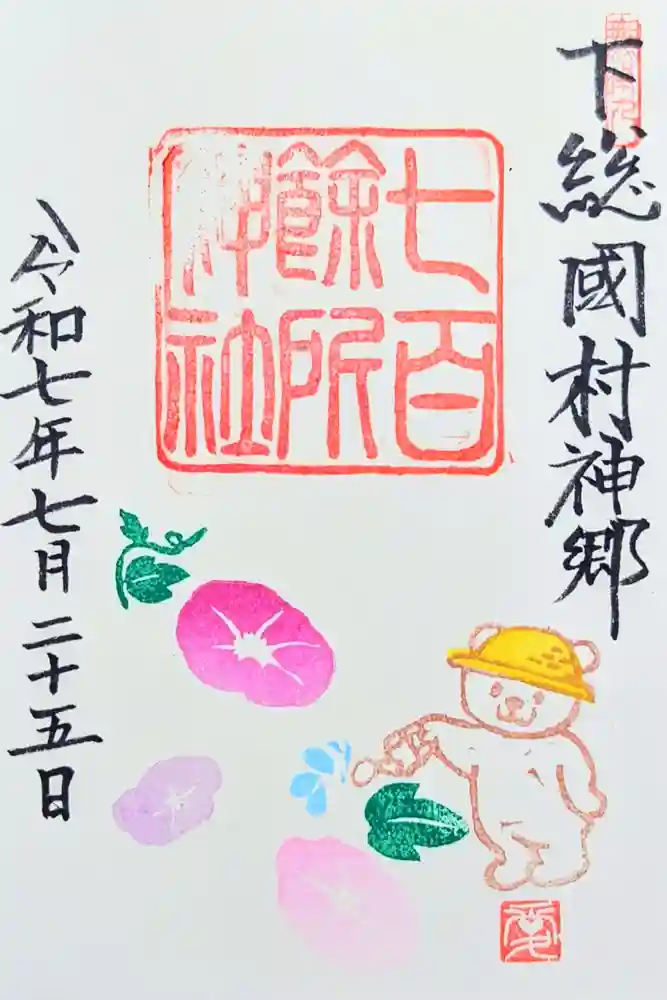 下総國村神郷
七百
餘所
神社
令和七年七月二十五日